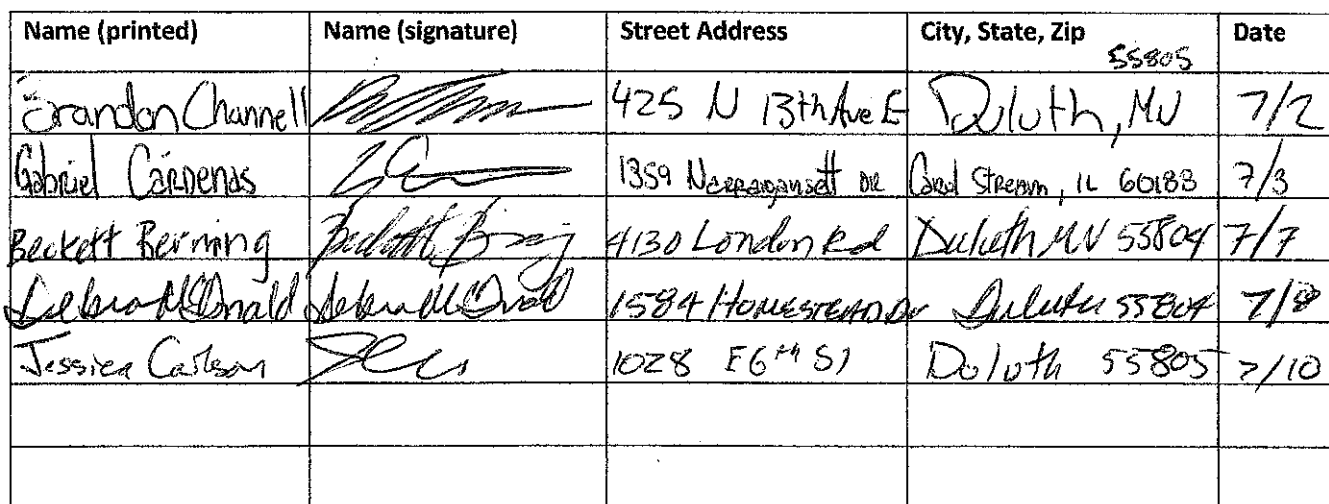 Name (printed) Name (signature) Street Address City, State, Zip Date
55805
Brandon Channell 425 N 13th Ave E Duluth, MN 7/2
Gabriel Cárdenas 1359 Narragansett DR Carol Stream, IL 60188 7/3
Beckett Berning Beckett Berning 4130 London Rd Duluth MN 55804 7/7
Debra McDonald Debra McDonald 1584 Homestead Dr Duluth 55804 7/8
Jessica Carlson 1028 E 6th St Duluth 55805 7/10